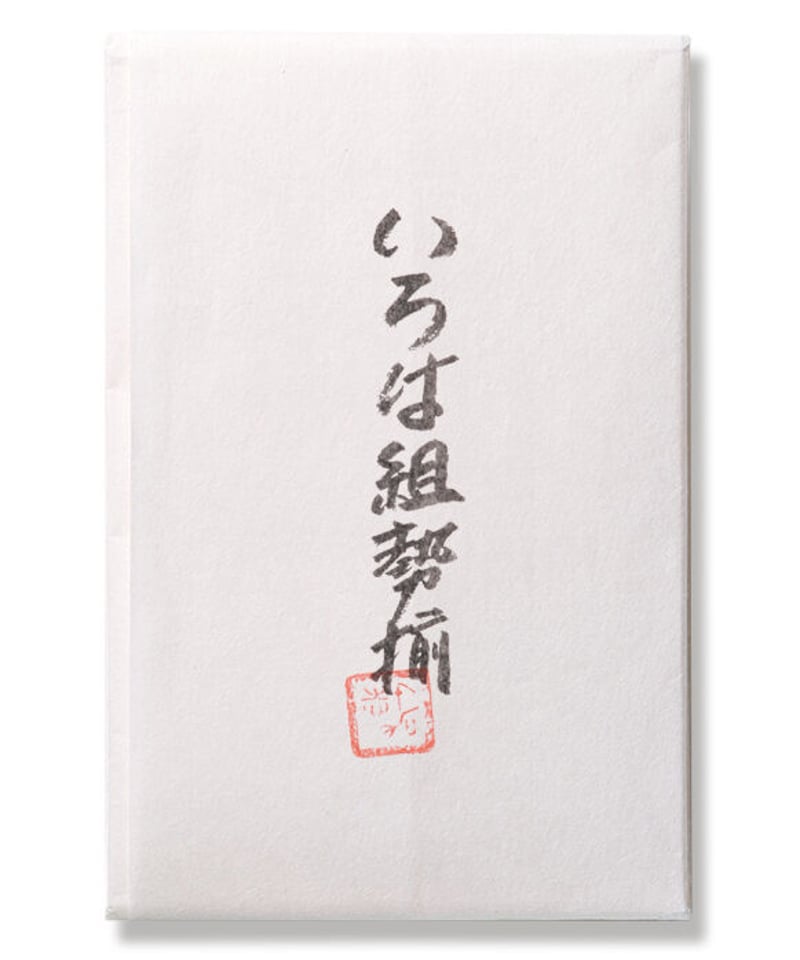 いろは組勢揃